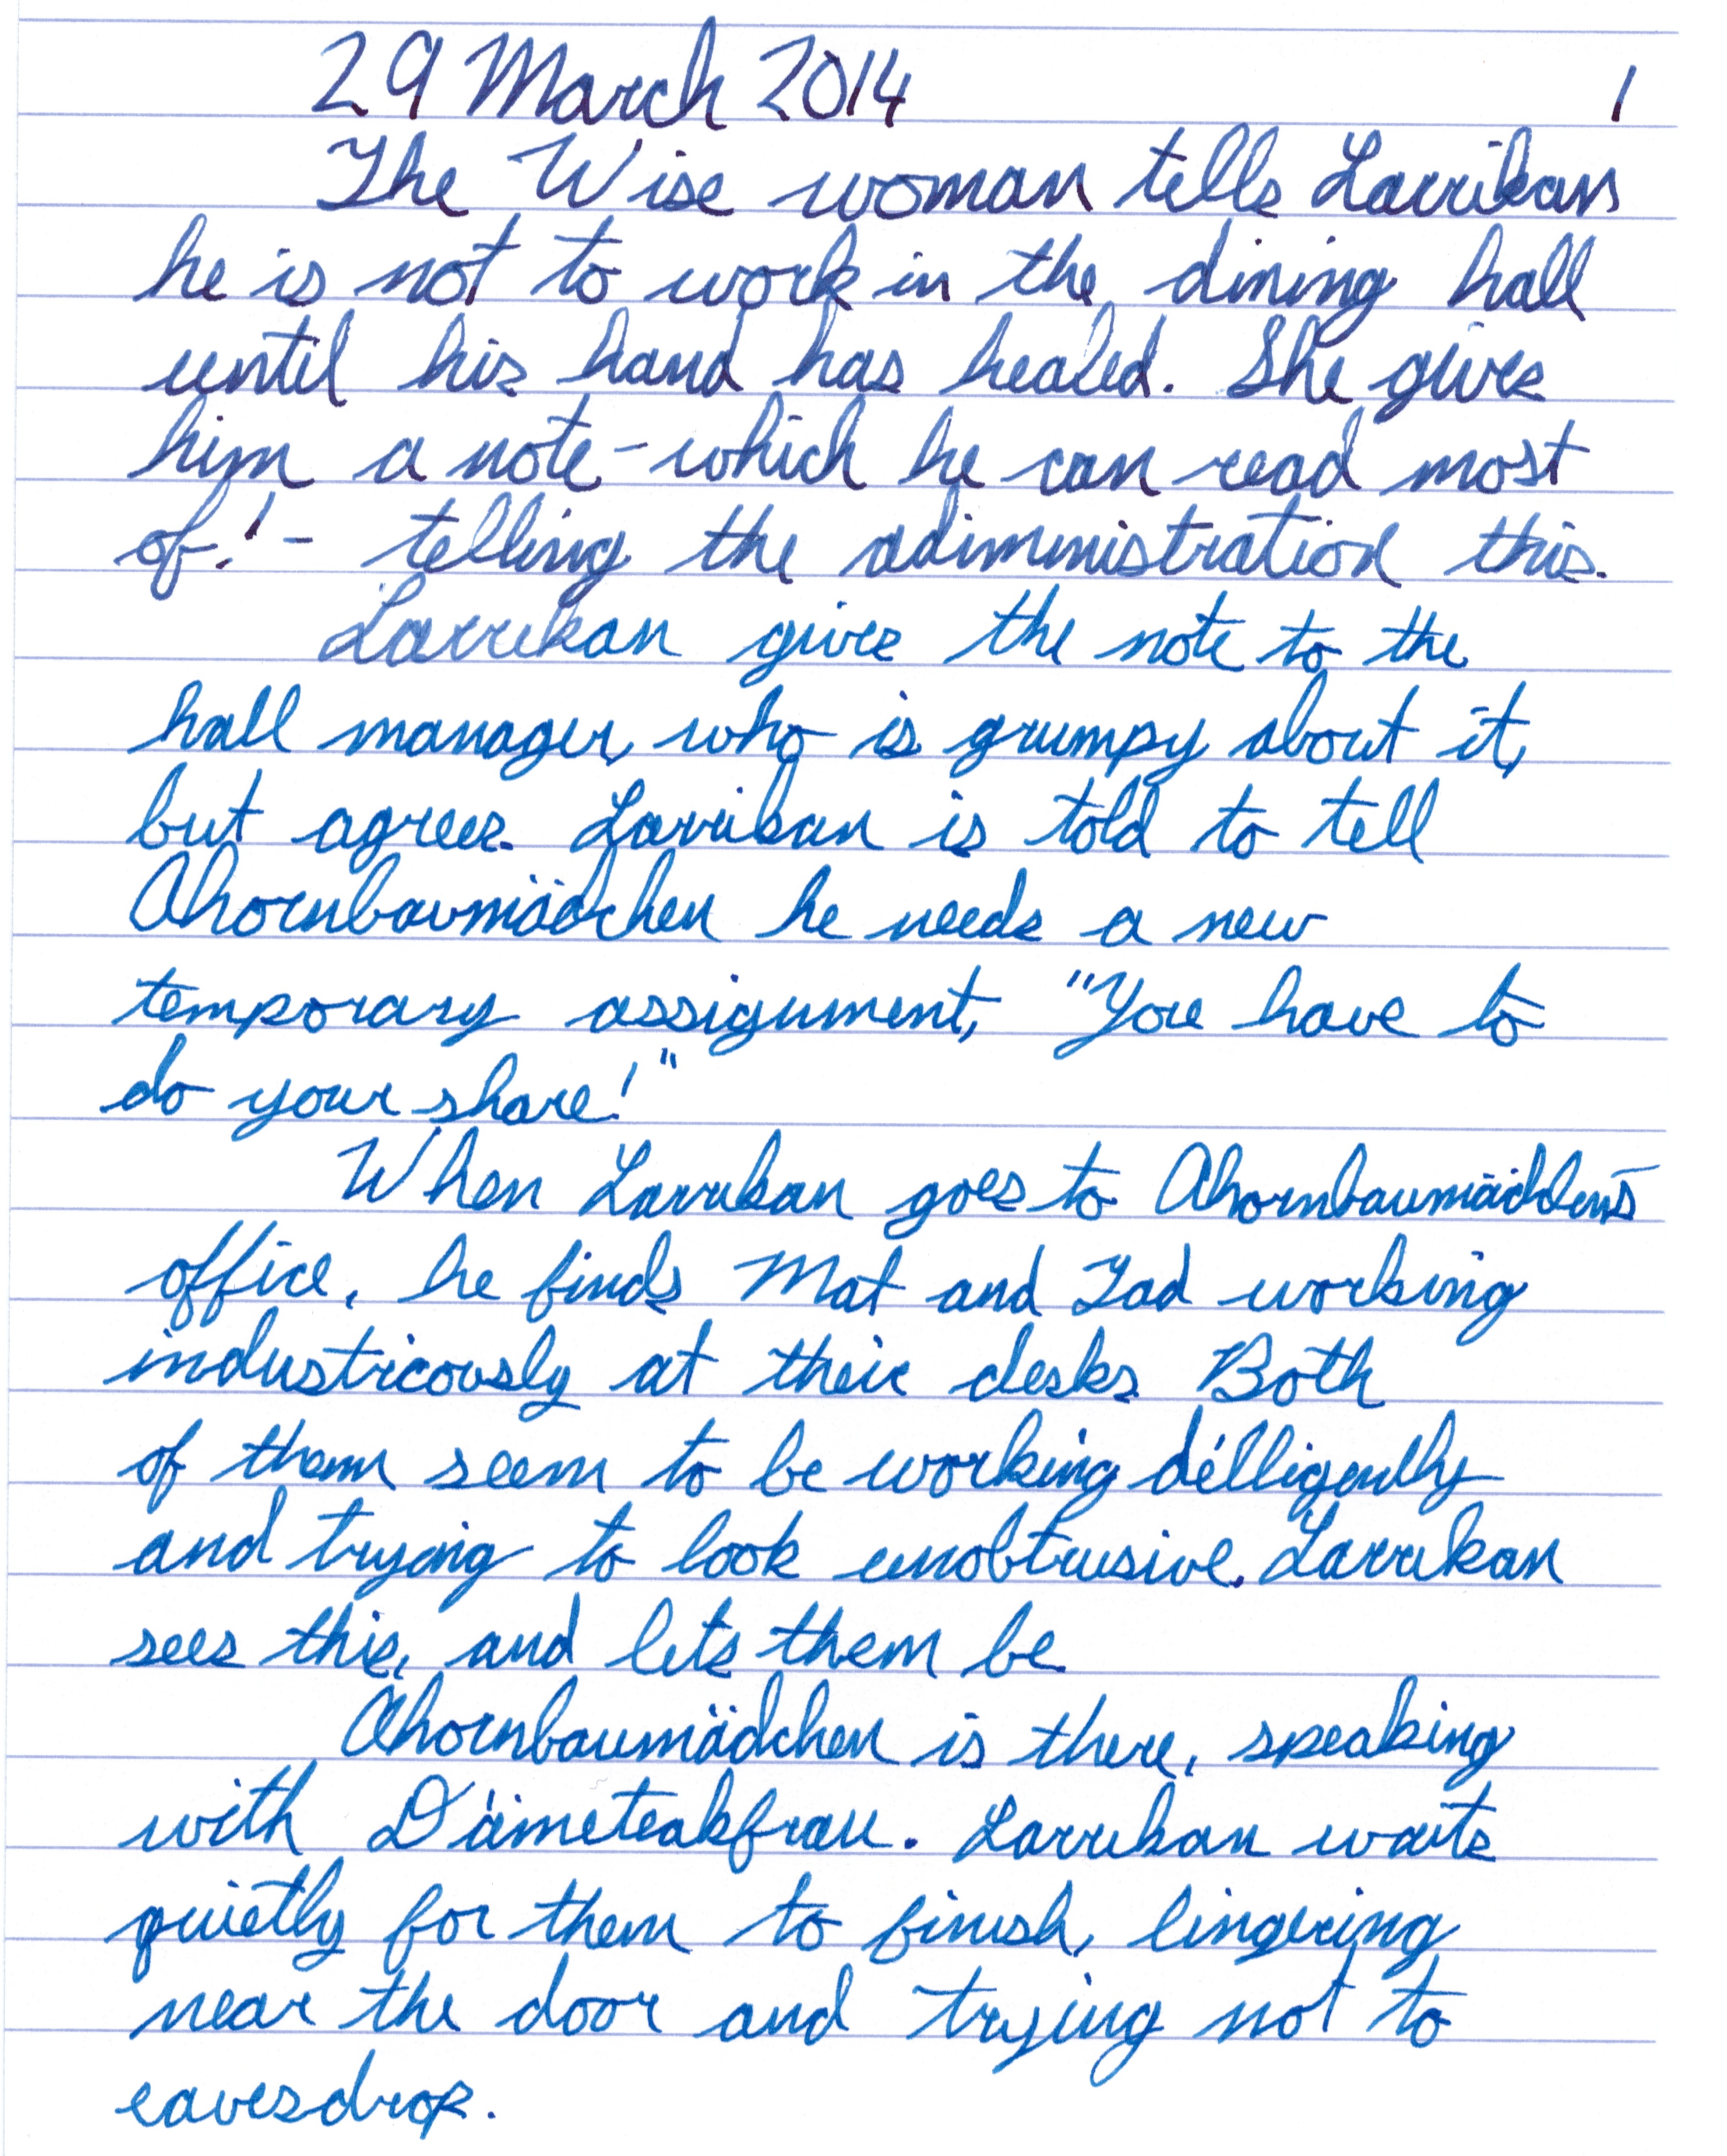 29 March 2014 1
The Wise woman tells Larrikan
he is not to work in the dining hall
until his hand has healed. She gives
him a note - which he can read most
of! - telling the adiministration this.
Larrikan gives the note to the
hall manager, who is grumpy about it,
but agrees. Larrikan is told to tell
Ahornbaumädchen he needs a new
temporary assignment, "You have to
do your share!"
When Larrikan goes to Ahornbaumädchen's
office, he finds Mat and Tad working
industriously at their desks. Both
of them seem to be working dilligently
and trying to look unobtrusive. Larrikan
sees this, and lets them be.
Ahornbaumädchen is there, speaking
with Dämeteakfrau. Larrikan waits
quietly for them to finish, lingering
near the door and trying not to
eavesdrop.